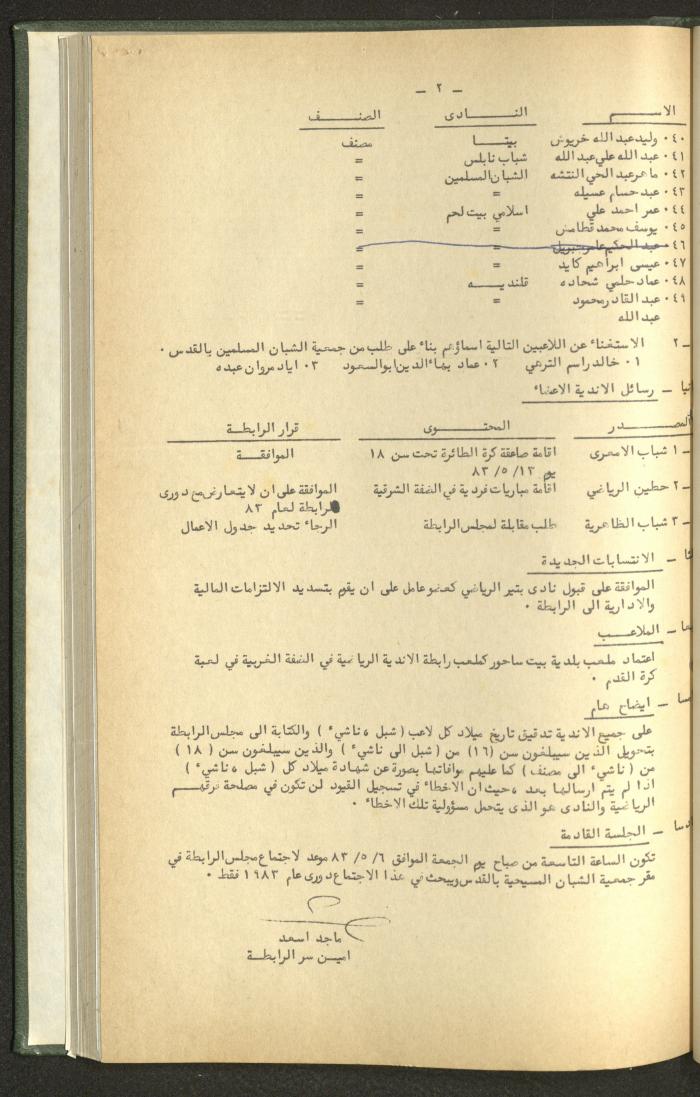 - ٢ -
الاســـم النــادى الصنــف
٤٠٠ وليد عبد الله خريوش بيتــا مصنف
٤١٠ عبد الله علي عبد الله شباب نابلس =
٤٢٠ ماهر عبد الحي النتشه الشبان المسلمين =
٤٣٠ عبد حسام عسيله = =
٤٤٠ عمر احمد علي اسلامي بيت لحم =
٤٥٠ يوسف محمد قطامش = =
٤٦٠ عبد الحكيم عامر جبريل = =
٤٧٠ عيسى ابراهيم كايد = =
٤٨٠ عماد حلمي شحاده قلنديــه =
٤٩٠ عبد القادر محمود = =
عبد الله
٢ـ الاستغناء عن اللاعبين التالية اسماؤهم بناء على طلب من جمعية الشبان المسلمين بالقدس ٠
١ ٠ خالد راسم الترهي ٢ ٠ عماد بهاء الدين ابو السعود ٣ ٠ اياد مروان عبده
نيا ـ رسائل الاندية الاعضاء
المصــدر المحتــوى قرار الرابطــة
١ ـ شباب الامعرى اقامة صاعقة كرة الطائرة تحت سن ١٨ الموافقــة
يوم ١٣ / ٥ / ٨٣
٢ ـ حطين الرياضي اقامة مباريات فردية في الضفة الشرقية الموافقة على ان لا يتعارض مع دورى
الرابطة لعام ٨٣
٣ ـ شباب الظاهرية طلب مقابلة لمجلس الرابطة الرجاء تحديد جدول الاعمال
ثا ـ الانتسابات الجديدة
الموافقة على قبول نادى بتير الرياضي كعضو عامل على ان يقوم بتسديد الالتزامات المالية
والادارية الى الرابطة ٠
عا ـ الملاعــب
اعتماد ملعب بلدية بيت ساحور كملعب رابطة الاندية الرياضية في الضفة الغربية في لعبة
كرة القدم ٠
مسا ـ ايضاح هام
على جميع الاندية تدقيق تاريخ ميلاد كل لاعب ( شبل ، ناشيء ) والكتابة الى مجلس الرابطة
بتحويل الذين سيبلغون سن (١٦) من ( شبل الى ناشيء ) والذين سيبلغون سن ( ١٨ )
من ( ناشيء الى مصنف ) كما عليهم موافاتها بصورة عن شهادة ميلاد كل ( شبل ، ناشيء )
اذا لم يتم ارسالها بعد ، حيث ان الاخطاء في تسجيل القيود لن تكون في مصلحة فرقهــم
الرياضية والنادى هو الذى يتحمل مسؤولية تلك الاخطاء ٠
دسا ـ الجلسة القادمة
تكون الساعة التاسعة من صباح يوم الجمعة الموافق ٦ / ٥ / ٨٣ موعد لاجتماع مجلس الرابطة في
مقر جمعية الشبان المسيحية بالقدس ويبحث في هذا الاجتماع دورى عام ١٩٨٣ فقط ٠
ماجد اسعد
اميــن سر الرابطــة